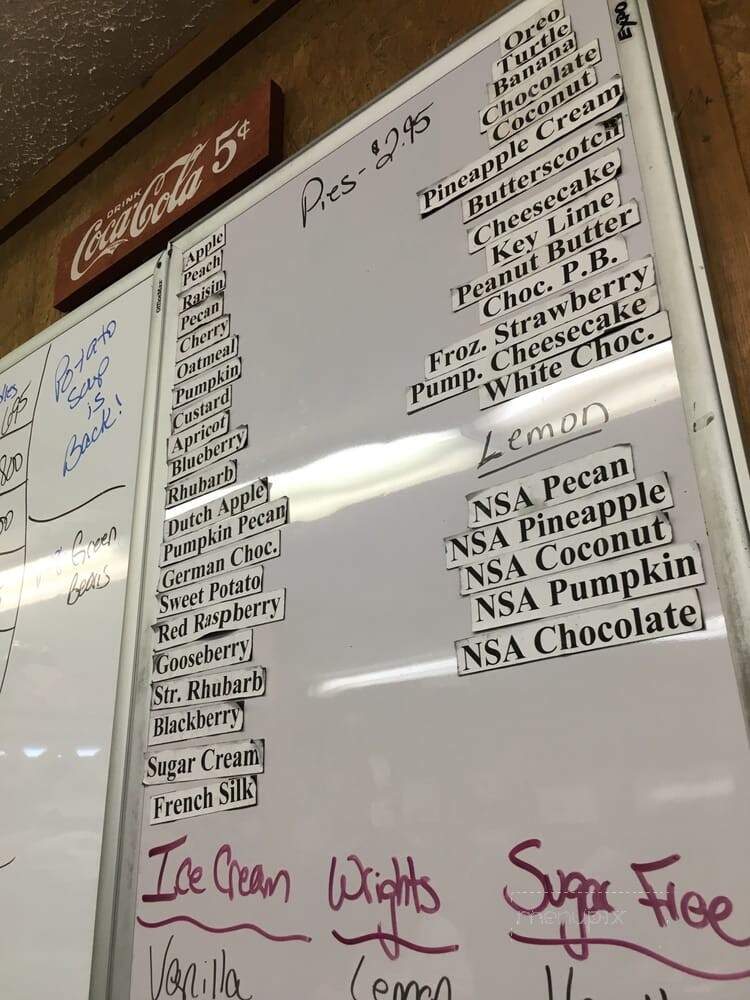 DRINK
Coca-Cola 5¢
Potato
Soup
is
Back!
Green
Beans
Pies - $2.95
Apple
Peach
Raisin
Pecan
Cherry
Oatmeal
Pumpkin
Custard
Apricot
Blueberry
Rhubarb
Dutch Apple
Pumpkin Pecan
German Choc.
Sweet Potato
Red Raspberry
Gooseberry
Str. Rhubarb
Blackberry
Sugar Cream
French Silk
EXPO
Oreo
Turtle
Banana
Chocolate
Coconut
Pineapple Cream
Butterscotch
Cheesecake
Key Lime
Peanut Butter
Choc. P.B.
Froz. Strawberry
Pump. Cheesecake
White Choc.
Lemon
NSA Pecan
NSA Pineapple
NSA Coconut
NSA Pumpkin
NSA Chocolate
Ice Cream Wrights Sugar Free
Vanilla Lemon
menupix